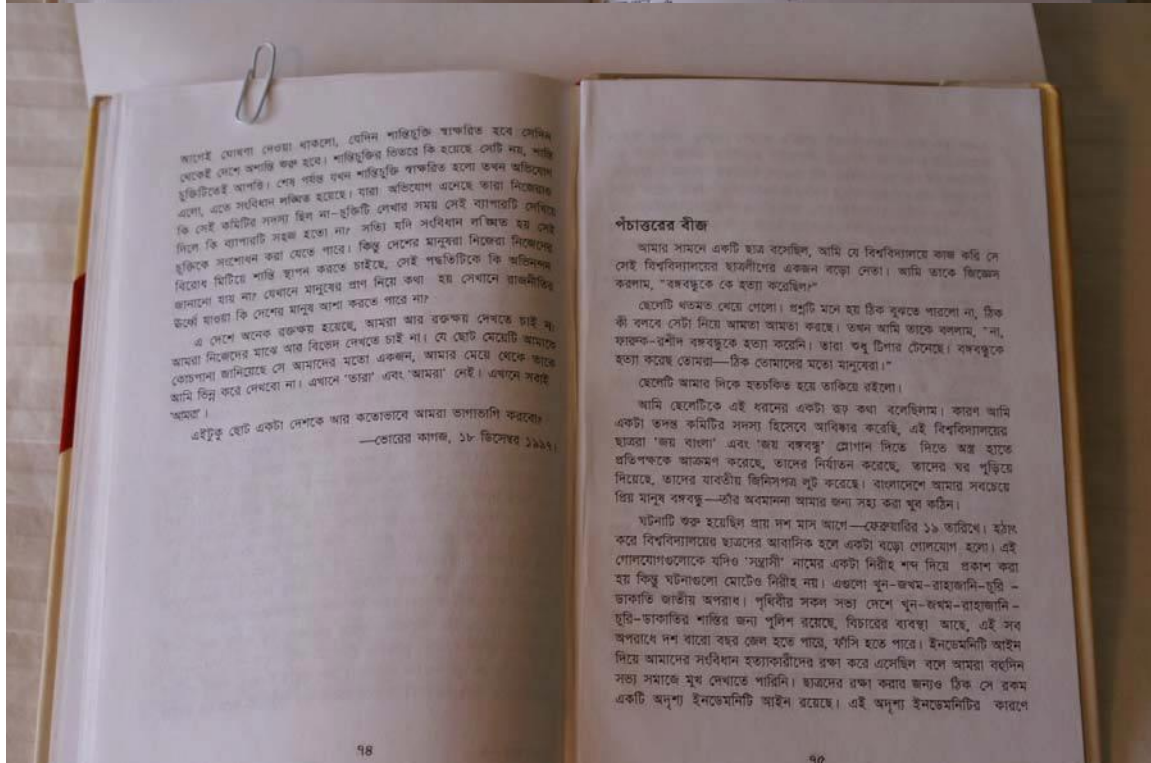 আগেই ঘোষণা দেওয়া থাকলো, যেদিন শান্তিচুক্তি স্বাক্ষরিত হবে সেদিন
থেকেই দেশে অশান্তি শুরু হবে। শান্তিচুক্তির ভিতরে কি হয়েছে সেটি নয়, শান্তি
চুক্তিটিতেই আপত্তি। শেষ পর্যন্ত যখন শান্তিচুক্তি স্বাক্ষরিত হলো তখন অভিযোগ
এলো, এতে সংবিধান লঙ্ঘিত হয়েছে। যারা অভিযোগ এনেছে তারা নিজেরাও
কি সেই কমিটির সদস্য ছিল না–চুক্তিটি লেখার সময় সেই ব্যাপারটি দেখিয়ে
দিলে কি ব্যাপারটি সহজ হতো না? সত্যি যদি সংবিধান লঙ্ঘিত হয় সেই
চুক্তিকে সংশোধন করা যেতে পারে। কিন্তু দেশের মানুষরা নিজেরা নিজেদের
বিরোধ মিটিয়ে শান্তি স্থাপন করতে চাইছে, সেই পদ্ধতিটিকে কি অভিনন্দন
জানানো যায় না? যেখানে মানুষের প্রাণ নিয়ে কথা হয় সেখানে রাজনীতির
ঊর্ধ্বে যাওয়া কি দেশের মানুষ আশা করতে পারে না?
এ দেশে অনেক রক্তক্ষয় হয়েছে, আমরা আর রক্তক্ষয় দেখতে চাই না।
আমরা নিজেদের মাঝে আর বিভেদ দেখতে চাই না। যে ছোট মেয়েটি আমাকে
কোচপানা জানিয়েছে সে আমাদের মতো একজন, আমার মেয়ে থেকে তাকে
আমি ভিন্ন করে দেখবো না। এখানে 'তারা' এবং 'আমরা' নেই। এখানে সবাই
'আমরা'।
এইটুকু ছোট একটা দেশকে আর কতোভাবে আমরা ভাগাভাগি করবো?
—ভোরের কাগজ, ১৮ ডিসেম্বর ১৯৯৭।
৭৪
পঁচাত্তরের বীজ
আমার সামনে একটি ছাত্র বসেছিল, আমি যে বিশ্ববিদ্যালয়ে কাজ করি সে
সেই বিশ্ববিদ্যালয়ের ছাত্রলীগের একজন বড়ো নেতা। আমি তাকে জিজ্ঞেস
করলাম, "বঙ্গবন্ধুকে কে হত্যা করেছিল?"
ছেলেটি থতমত খেয়ে গেলো। প্রশ্নটি মনে হয় ঠিক বুঝতে পারলো না, ঠিক
কী বলবে সেটা নিয়ে আমতা আমতা করছে। তখন আমি তাকে বললাম, "না,
ফারুক–রশীদ বঙ্গবন্ধুকে হত্যা করেনি। তারা শুধু ট্রিগার টেনেছে। বঙ্গবন্ধুকে
হত্যা করেছ তোমরা—ঠিক তোমাদের মতো মানুষেরা।"
ছেলেটি আমার দিকে হতচকিত হয়ে তাকিয়ে রইলো।
আমি ছেলেটিকে এই ধরনের একটা রূঢ় কথা বলেছিলাম। কারণ আমি
একটা তদন্ত কমিটির সদস্য হিসেবে আবিষ্কার করেছি, এই বিশ্ববিদ্যালয়ের
ছাত্ররা 'জয় বাংলা' এবং 'জয় বঙ্গবন্ধু' স্লোগান দিতে দিতে অস্ত্র হাতে
প্রতিপক্ষকে আক্রমণ করেছে, তাদের নির্যাতন করেছে, তাদের ঘর পুড়িয়ে
দিয়েছে, তাদের যাবতীয় জিনিসপত্র লুট করেছে। বাংলাদেশে আমার সবচেয়ে
প্রিয় মানুষ বঙ্গবন্ধু—তাঁর অবমাননা আমার জন্য সহ্য করা খুব কঠিন।
ঘটনাটি শুরু হয়েছিল প্রায় দশ মাস আগে—ফেব্রুয়ারির ১৯ তারিখে। হঠাৎ
করে বিশ্ববিদ্যালয়ের ছাত্রদের আবাসিক হলে একটা বড়ো গোলযোগ হলো। এই
গোলযোগগুলোকে যদিও 'সন্ত্রাসী' নামের একটা নিরীহ শব্দ দিয়ে প্রকাশ করা
হয় কিন্তু ঘটনাগুলো মোটেও নিরীহ নয়। এগুলো খুন–জখম–রাহাজানি–চুরি –
ডাকাতি জাতীয় অপরাধ। পৃথিবীর সকল সভ্য দেশে খুন–জখম–রাহাজানি –
চুরি–ডাকাতির শাস্তির জন্য পুলিশ রয়েছে, বিচারের ব্যবস্থা আছে, এই সব
অপরাধে দশ বারো বছর জেল হতে পারে, ফাঁসি হতে পারে। ইনডেমনিটি আইন
দিয়ে আমাদের সংবিধান হত্যাকারীদের রক্ষা করে এসেছিল বলে আমরা বহুদিন
সভ্য সমাজে মুখ দেখাতে পারিনি। ছাত্রদের রক্ষা করার জন্যও ঠিক সে রকম
একটি অদৃশ্য ইনডেমনিটি আইন রয়েছে। এই অদৃশ্য ইনডেমনিটির কারণে
৭৫